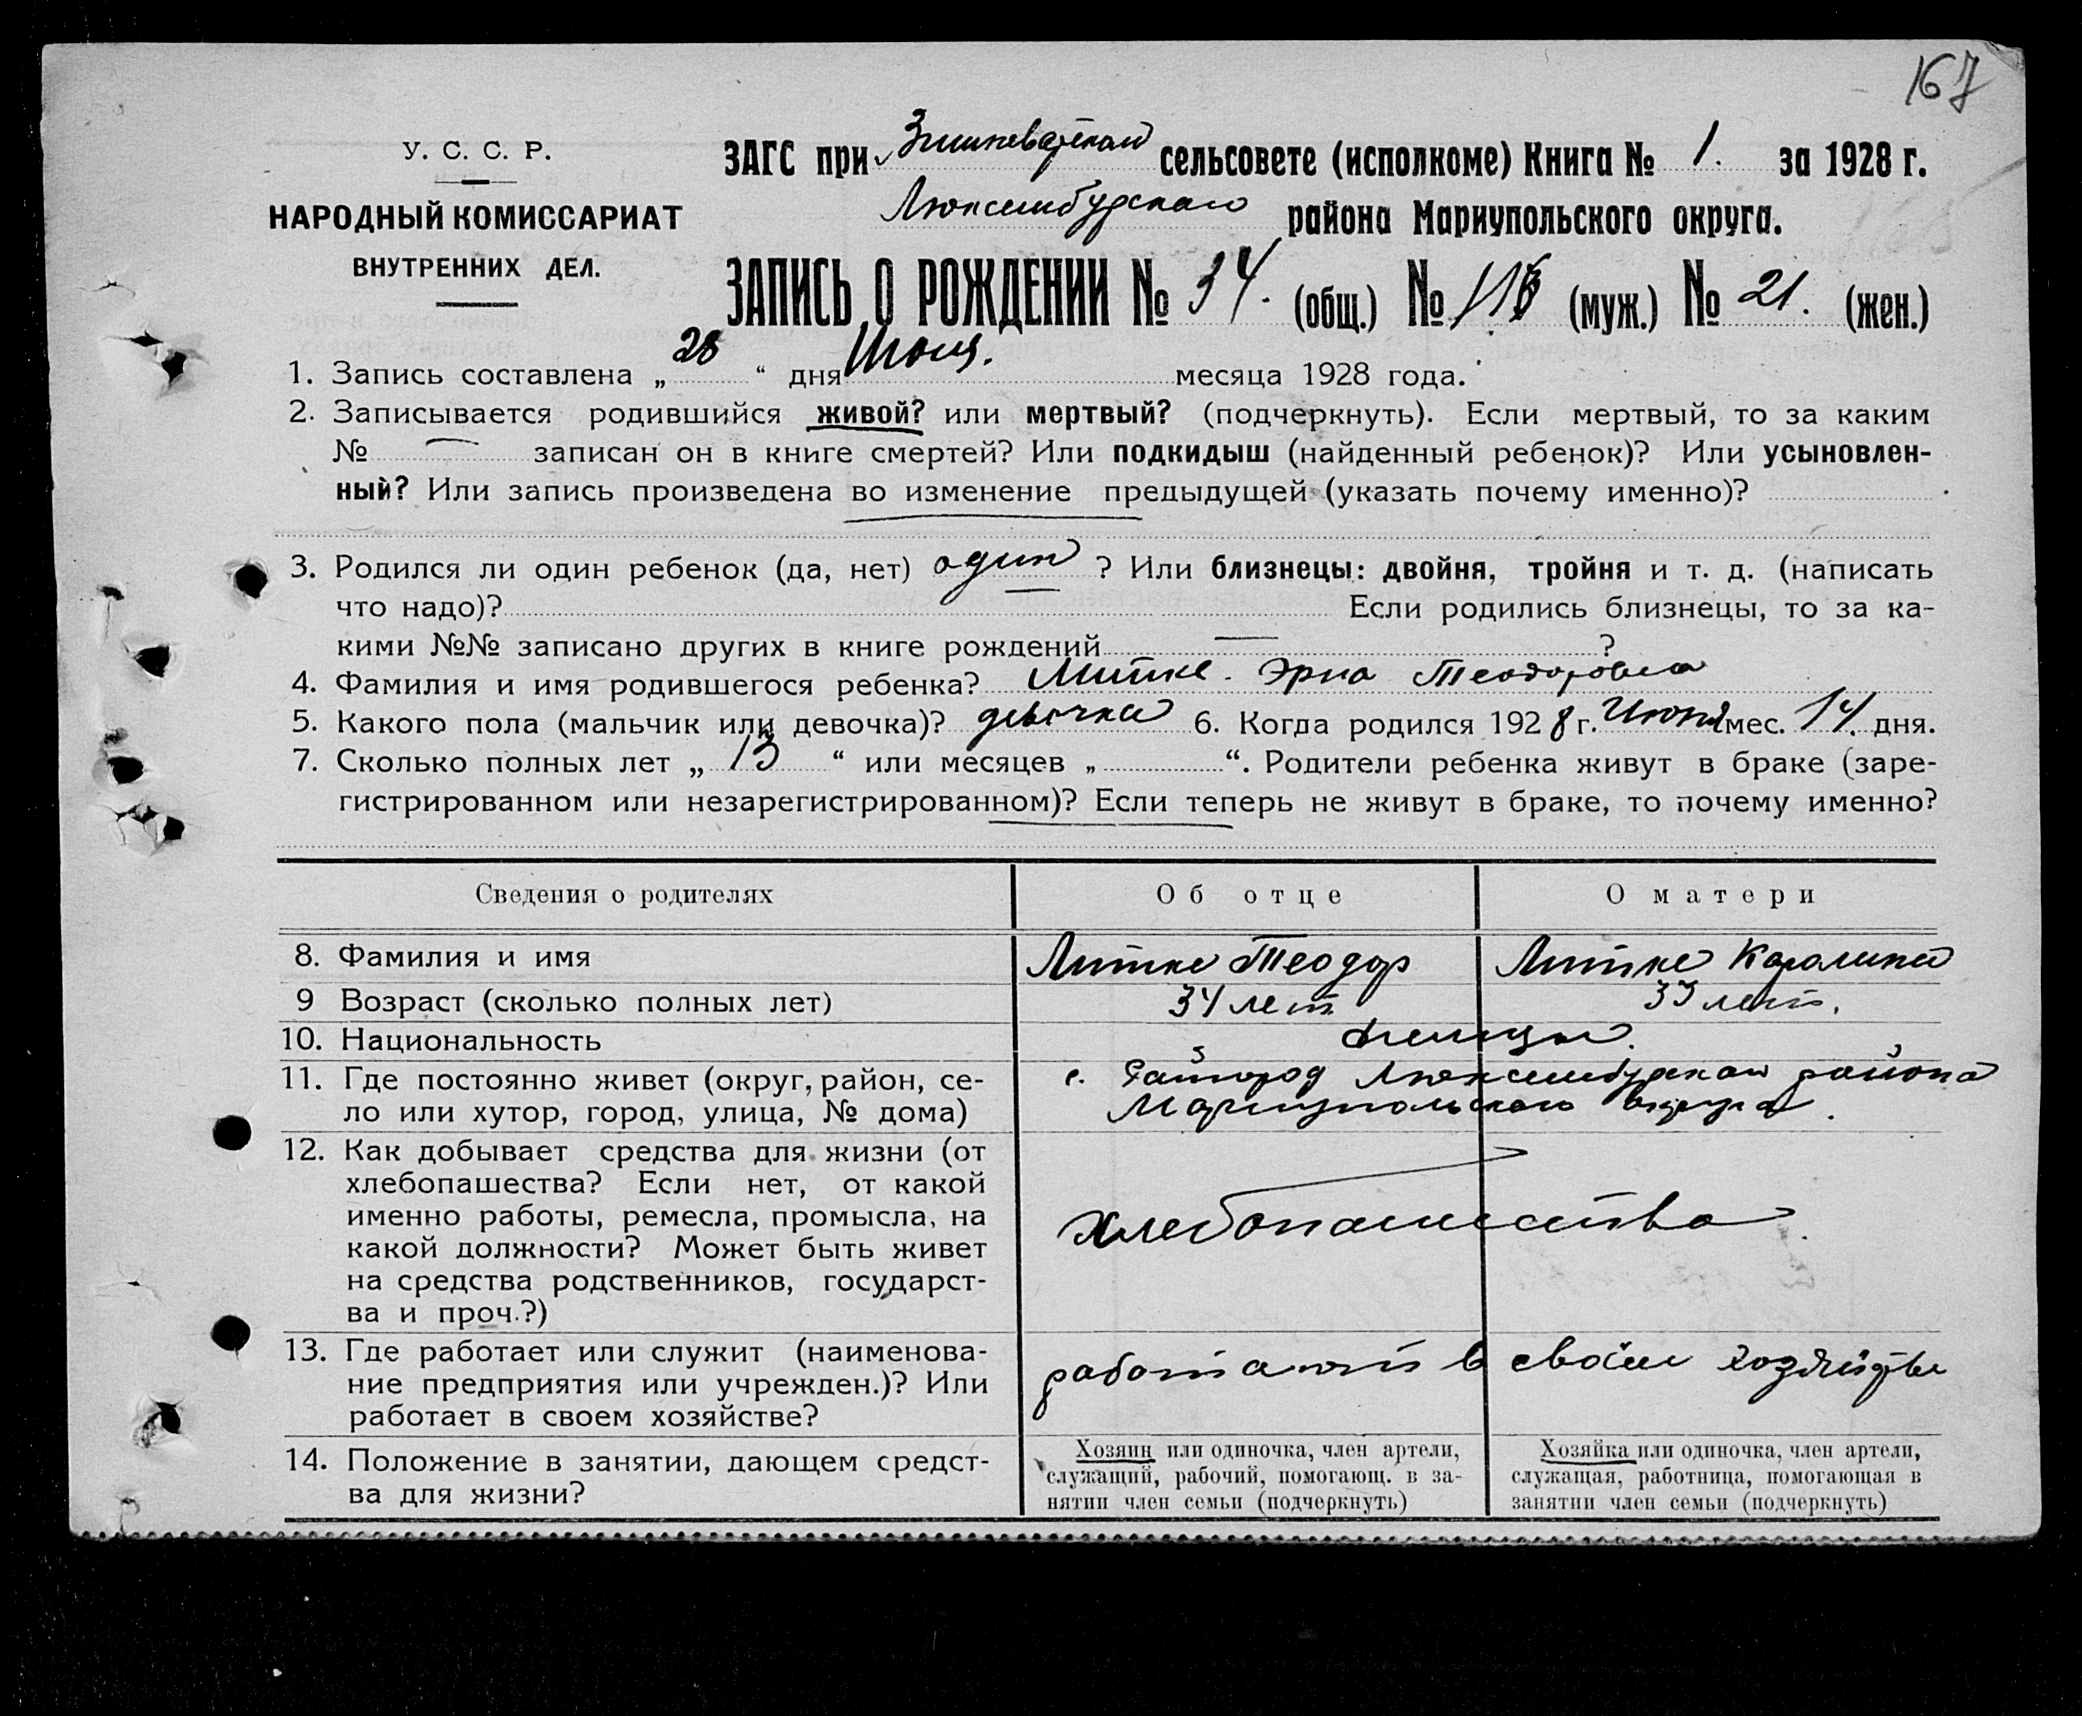 167
У. С. С. Р.
НАРОДНЫЙ КОМИССАРИАТ
ВНУТРЕННИХ ДЕЛ.
ЗАГС при сельсовете (исполкоме) Книга № 1. за 1928 г.
Люксембургского района Мариупольского округа.
ЗАПИСЬ О РОЖДЕНИИ № 34. (общ.) № (муж.) № 21. (жен.)
1. Запись составлена „ 28 “ дня месяца 1928 года.
2. Записывается родившийся живой? или мертвый? (подчеркнуть). Если мертвый, то за каким
№ — записан он в книге смертей? Или подкидыш (найденный ребенок)? Или усыновлен-
ный? Или запись произведена во изменение предыдущей (указать почему именно)?
3. Родился ли один ребенок (да, нет) один ? Или близнецы: двойня, тройня и т. д. (написать
что надо)? Если родились близнецы, то за ка-
кими №№ записано других в книге рождений — ?
4. Фамилия и имя родившегося ребенка? Литке Эрна Теодоровна
5. Какого пола (мальчик или девочка)? девочка 6. Когда родился 1928 г. Июня мес. 14. дня.
7. Сколько полных лет „ 13 “ или месяцев „ “. Родители ребенка живут в браке (заре-
гистрированном или незарегистрированном)? Если теперь не живут в браке, то почему именно?
Сведения о родителях Об отце О матери
8. Фамилия и имя Литке Теодор Литке Каролина
9 Возраст (сколько полных лет) 34 лет лет.
10. Национальность немцы.
11. Где постоянно живет (округ, район, се- с. Райгород Люксембургского района
ло или хутор, город, улица, № дома) Мариупольского округа.
12. Как добывает средства для жизни (от
хлебопашества? Если нет, от какой
именно работы, ремесла, промысла, на хлебопашества.
какой должности? Может быть живет
на средства родственников, государст-
ва и проч.?)
13. Где работает или служит (наименова- работают в своем хозяйстве
ние предприятия или учрежден.)? Или
работает в своем хозяйстве?
14. Положение в занятии, дающем средст-
ва для жизни?
Хозяин или одиночка, член артели,
служащий, рабочий, помогающ. в за-
нятии член семьи (подчеркнуть)
Хозяйка или одиночка, член артели,
служащая, работница, помогающая в
занятии член семьи (подчеркнуть)